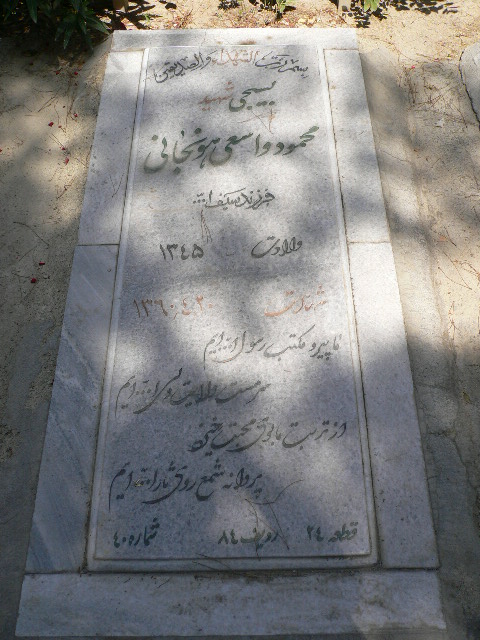 بسم رب الشهداء والصدیقین
شهید
بسیجی
محمود واسعی هونجانی
فرزند سیف ا...
ولادت ۱۳۴۵
شهادت ۱۳۶۰،۴،۲۰
ما پیرو مکتب رسول اللهیم
سرمست ولایت ولی اللهیم
از تربت ما بوی محبت خیزد
پروانه شمع روی ثار اللهیم
قطعه ۲۴ ردیف ۸۴ شماره ۴۰